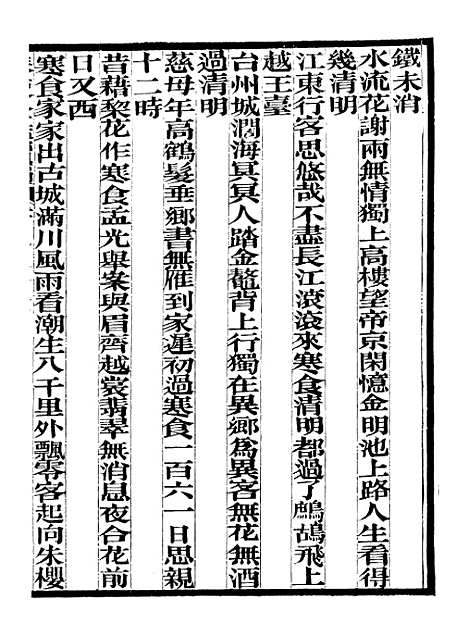 鐵未消
水流花謝兩無情獨上高樓望帝京閑憶金明池上路人生看得
幾清明
江東行客思悠哉不盡長江滾滾來寒食清明都過了鷓鴣飛上
越王臺
台州城濶海冥冥人踏金鼇背上行獨在異鄉爲異客無花無酒
過清明
慈母年高鶴髮垂鄉書無雁到家遲初過寒食一百六一日思親
十二時
昔藉梨花作寒食孟光舉案與眉齊越裳翡翠無消息夜合花前
日又西
寒食家家出古城滿川風雨看潮生八千里外飄零客起向朱櫻